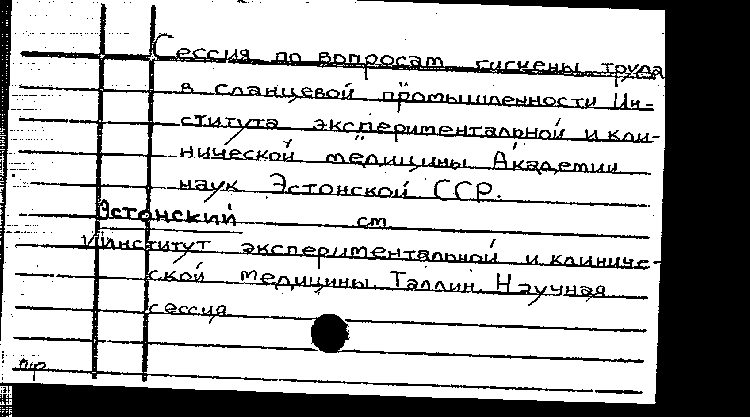 Сессия по вопросам гигиены труда
в сланцевой промышленности Ин-
ститута экспериментальной и кли-
нической медицины Академии
наук Эстонской ССР.
Эстонский см.
Институт экспериментальной и клиниче-
ской медицины. Таллин. Научная
сессия